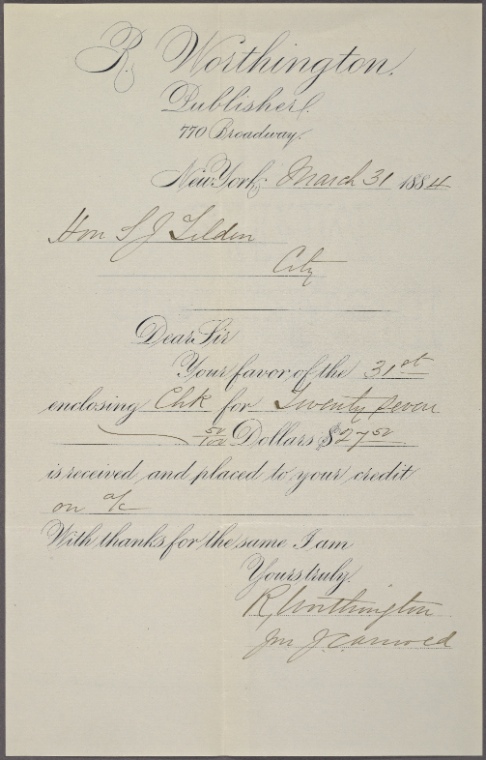 R. Worthington.
Publisher.
770 Broadway.
New York, March 31 1884
Hon S J Tilden
City
Dear Sir
Your favor of the 31st
enclosing Chk for Twenty seven
50/100 Dollars $27 50
is received and placed to your credit
on a/c
With thanks for the same I am
Yours truly.
R Worthington